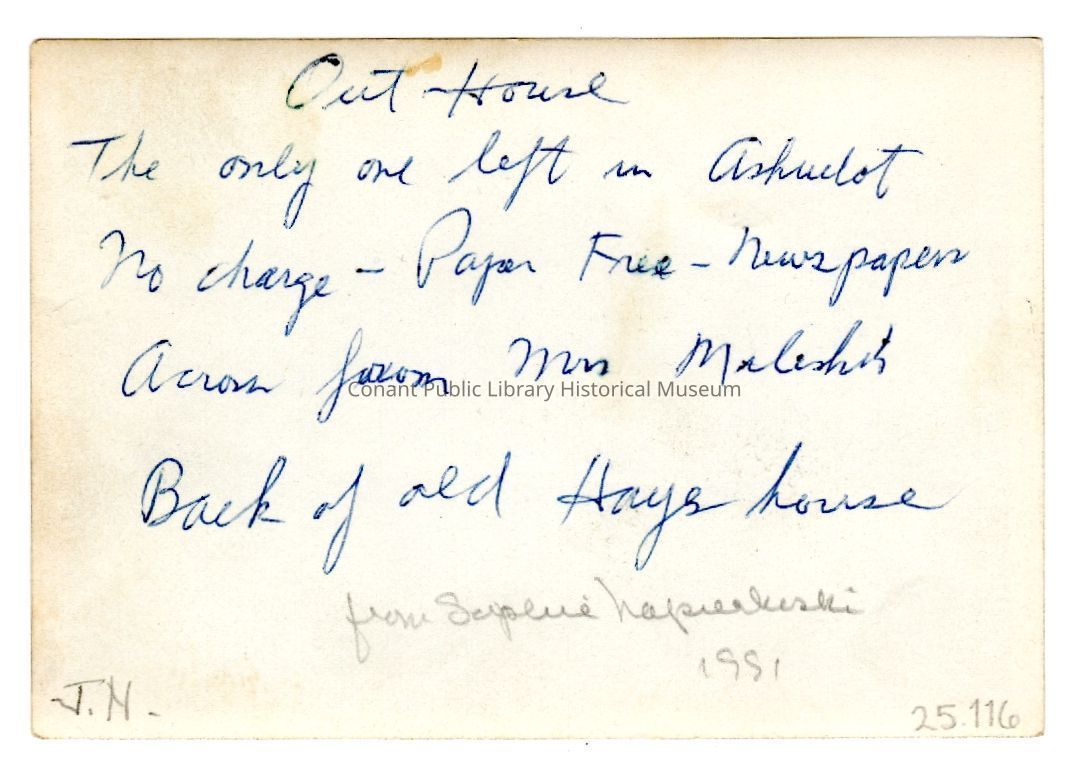 Out House
The only one left in Ashuelot
No charge - Paper Free - Newspapers
Across from Mrs Maleski's
Conant Public Library Historical Museum
Back of old Hays house
from Sophie Napierkoski
1991
J.N.
25.116